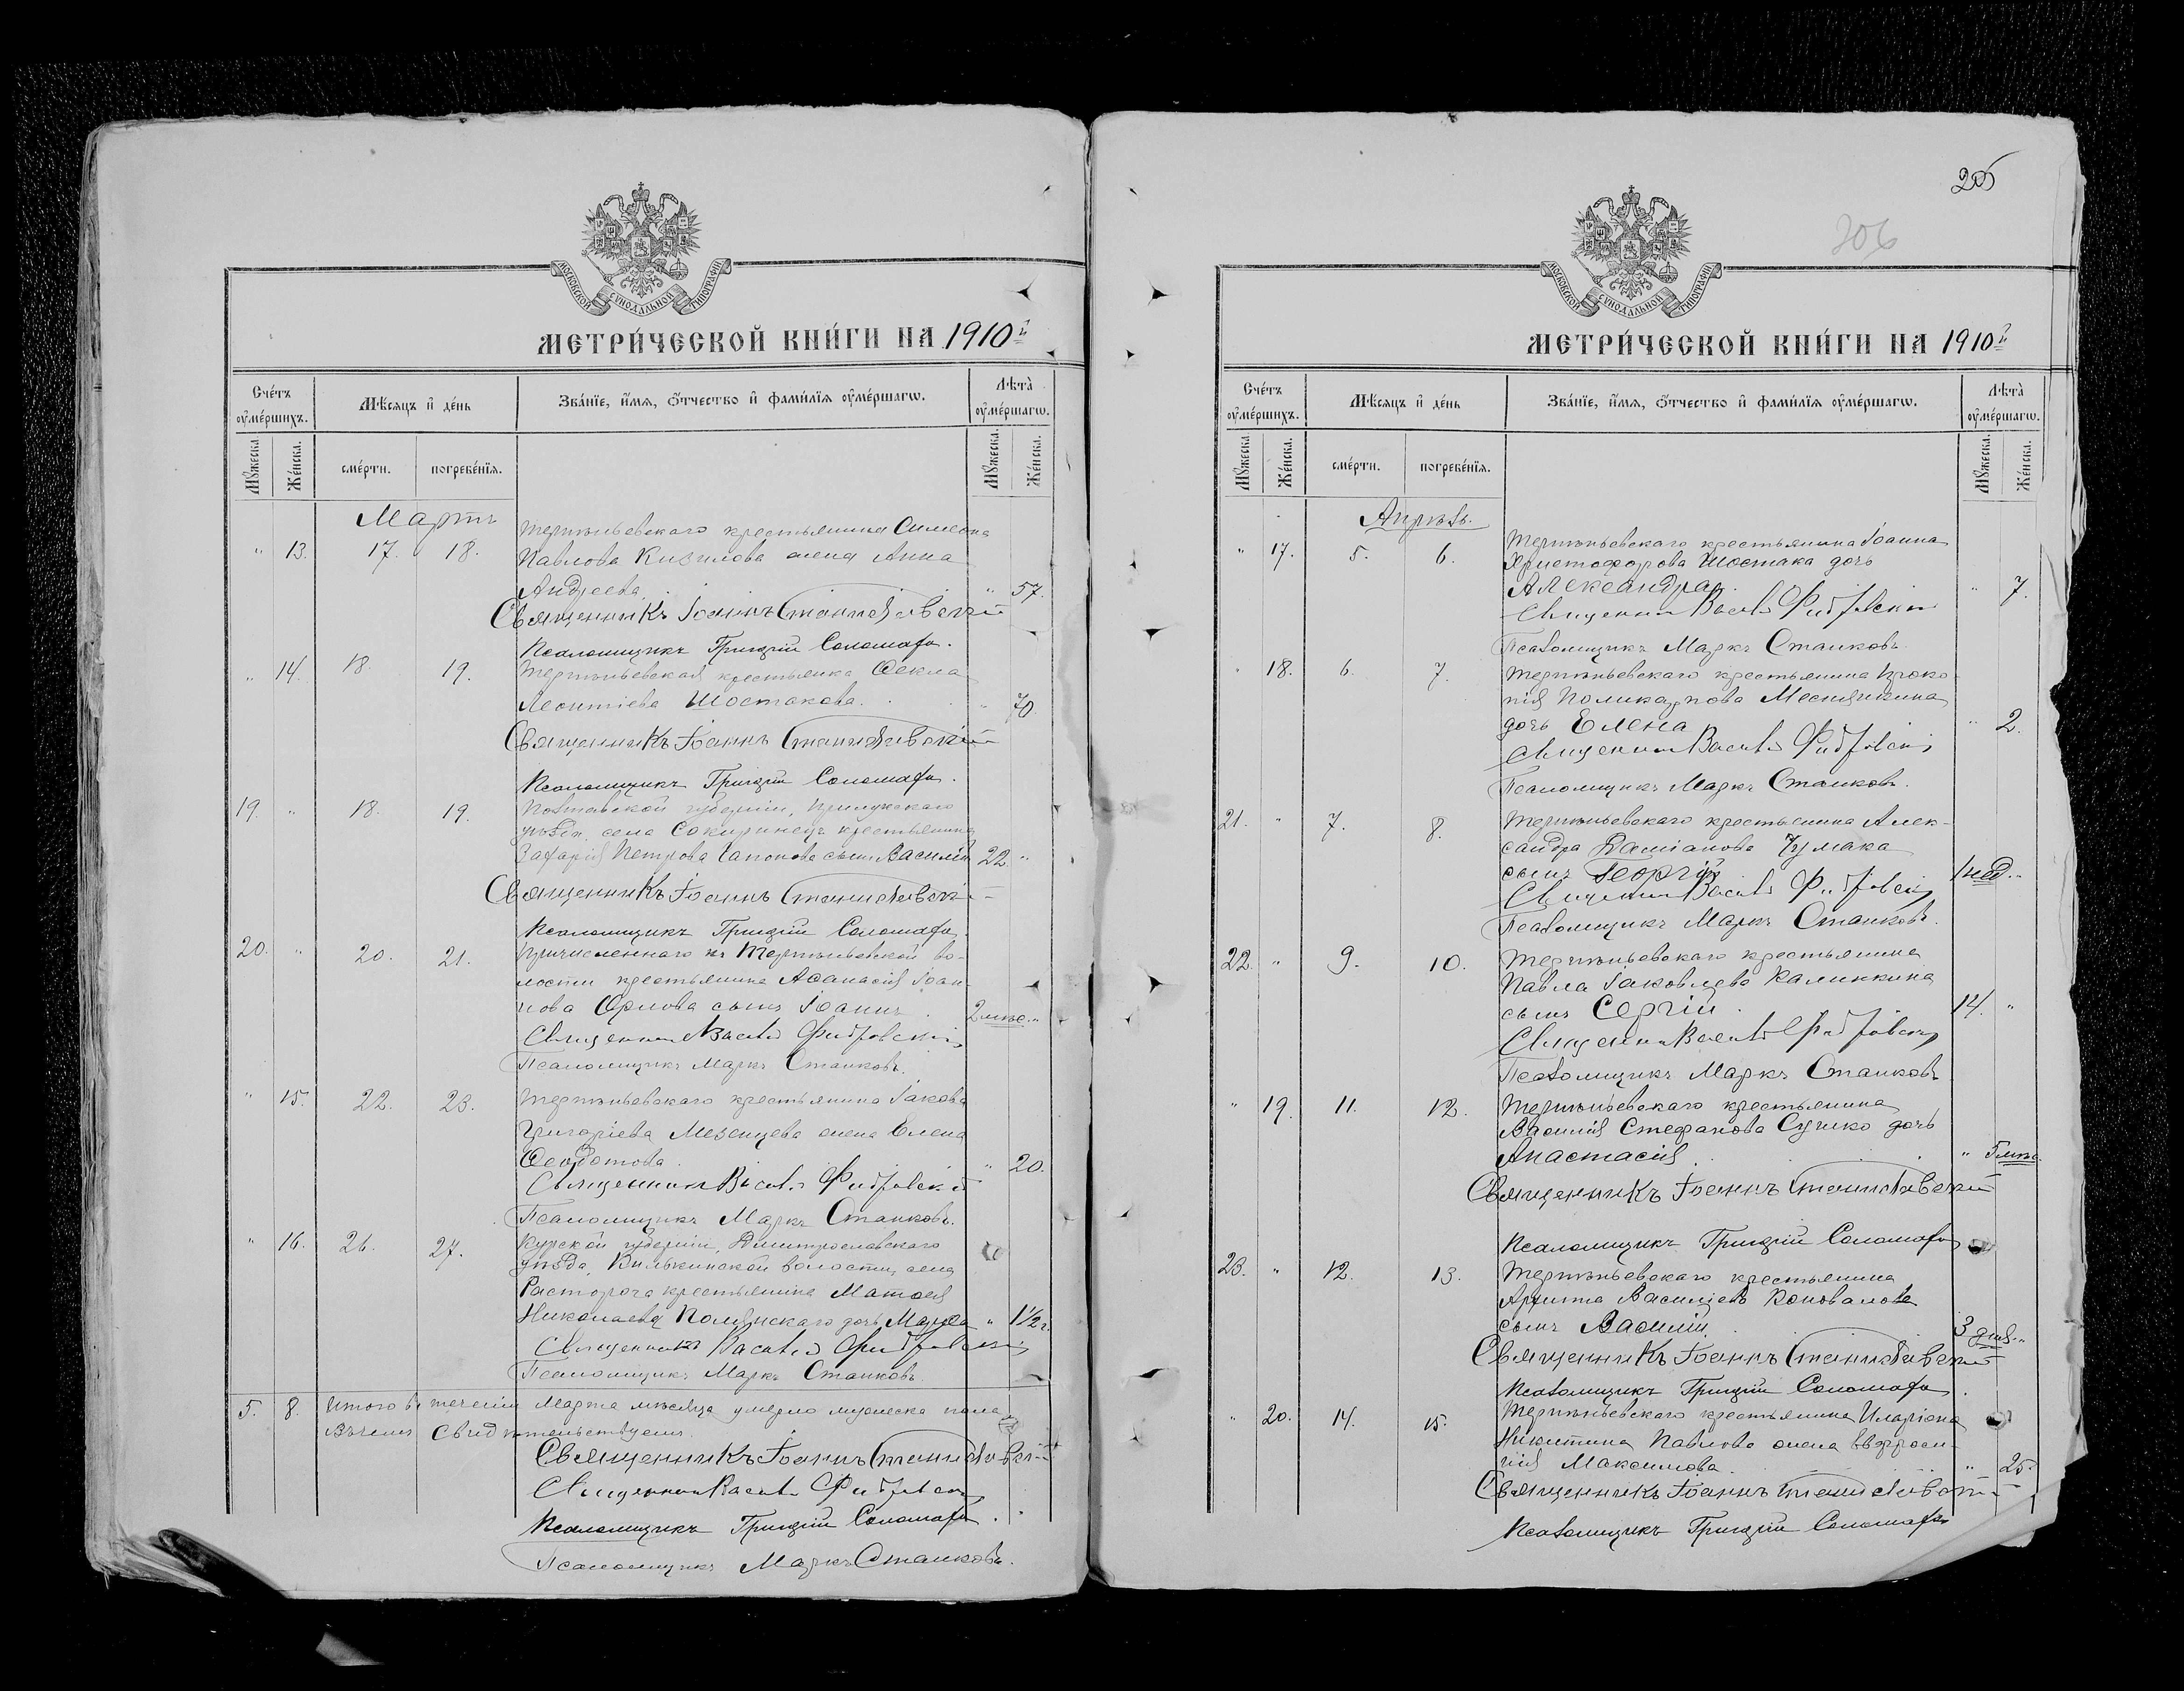 МОСКОВСКОЙ СѴНОДАЛЬНОЙ ТИПОГРАФІИ
МЕТРИ́ЧЕСКОЙ КНИ́ГИ НА 1910й
Сче́тъ оу҆ме́ршихъ.
Мѣ́сяцъ и҆ де́нь
Зва́нїе, и҆́мѧ, ѻ҆́тчество и҆ фами́лїѧ оу҆ме́ршагѡ.
Лѣта̀ оу҆ме́ршагѡ.
Мꙋжеска.
Же́нска.
сме́рти.
погребе́нїѧ.
Мꙋжеска.
Же́нска.
Мартъ
Терпѣньевскаго крестьянина Симеона
" 13. 17. 18. Павлова Кизилова жена Анна
Андреева. " 57.
Священникъ Іоаннъ Станиславскій
Псаломщикъ Григорій Соломаха.
" 14. 18. 19. Терпѣньевская крестьянка Ѳекла
Леонтіева Шостакова. " 70
Священникъ Іоаннъ Станиславскій
Псаломщикъ Григорій Соломаха.
19. " 18. 19. Полтавской губерніи, Прилукскаго
уѣзда, села Сокиринецъ крестьянина
Захарія Петрова Гапонова сынъ Василій 22 "
Священникъ Іоаннъ Станиславскій
Псаломщикъ Григорій Соломаха.
20. " 20. 21. Причисленнаго къ Терпѣньевской во-
лости крестьянина Аѳанасія Іоан-
нова Орлова сынъ Іоаннъ. 2 мѣс. "
Священникъ Василій
Псаломщикъ Маркъ Станковъ.
" 15. 22. 23. Терпѣньевскаго крестьянина Іакова
Григоріева Мезенцева жена Елена
Ѳеодотова. " 20.
Священникъ Василій
Псаломщикъ Маркъ Станковъ.
" 16. 26. 27. Курской губерніи, Дмитрославскаго
уѣзда, волости, села
крестьянина Матѳея
Николаева Полянскаго дочь Марѳа " 1½ г.
Священникъ Василій
Псаломщикъ Маркъ Станковъ.
5. 8. Итого въ теченіи Марта мѣсяца умерло мужеска пола
Въ чемъ свидѣтельствуемъ.
Священникъ Іоаннъ Станиславскій
Священникъ Василій
Псаломщикъ Григорій Соломаха.
Псаломщикъ Маркъ Станковъ.
206
МОСКОВСКОЙ СѴНОДАЛЬНОЙ ТИПОГРАФІИ
МЕТРИ́ЧЕСКОЙ КНИ́ГИ НА 1910й
Сче́тъ оу҆ме́ршихъ.
Мѣ́сяцъ и҆ де́нь
Зва́нїе, и҆́мѧ, ѻ҆́тчество и҆ фами́лїѧ оу҆ме́ршагѡ.
Лѣта̀ оу҆ме́ршагѡ.
Мꙋжеска.
Же́нска.
сме́рти.
погребе́нїѧ.
Мꙋжеска.
Же́нска.
Апрѣль.
Терпѣньевскаго крестьянина Іоанна
" 17. 5. 6. Христофорова Шостака дочь
Александра. " 7.
Священникъ Василій
Псаломщикъ Маркъ Станковъ
" 18. 6. 7. Терпѣньевскаго крестьянина Проко-
пія Поликарпова Месяцкина
дочь Елена " 2.
Священникъ Василій
Псаломщикъ Маркъ Станковъ.
21. " 7. 8. Терпѣньевскаго крестьянина Алек-
сандра Даміанова Чумака
сынъ Георгій 1 нед. "
Священникъ Василій
Псаломщикъ Маркъ Станковъ.
22. " 9. 10. Терпѣньевскаго крестьянина
Павла Іаковлева Калинкина
сынъ Сергій. 14. "
Священникъ Василій
Псаломщикъ Маркъ Станковъ
" 19. 11. 12. Терпѣньевскаго крестьянина
Василія Стефанова Сушко дочь
Анастасія. " 5 мѣс.
Священникъ Іоаннъ Станиславскій
Псаломщикъ Григорій Соломаха
23. " 12. 13. Терпѣньевскаго крестьянина
Архипа Васильева Коновалова
сынъ Василій. 3 дня. "
Священникъ Іоаннъ Станиславскій
Псаломщикъ Григорій Соломаха.
" 20. 14. 15. Терпѣньевскаго крестьянина Иларіона
Никитина Павлова жена Евфроси-
нія Максимова. " 25.
Священникъ Іоаннъ Станиславскій
Псаломщикъ Григорій Соломаха